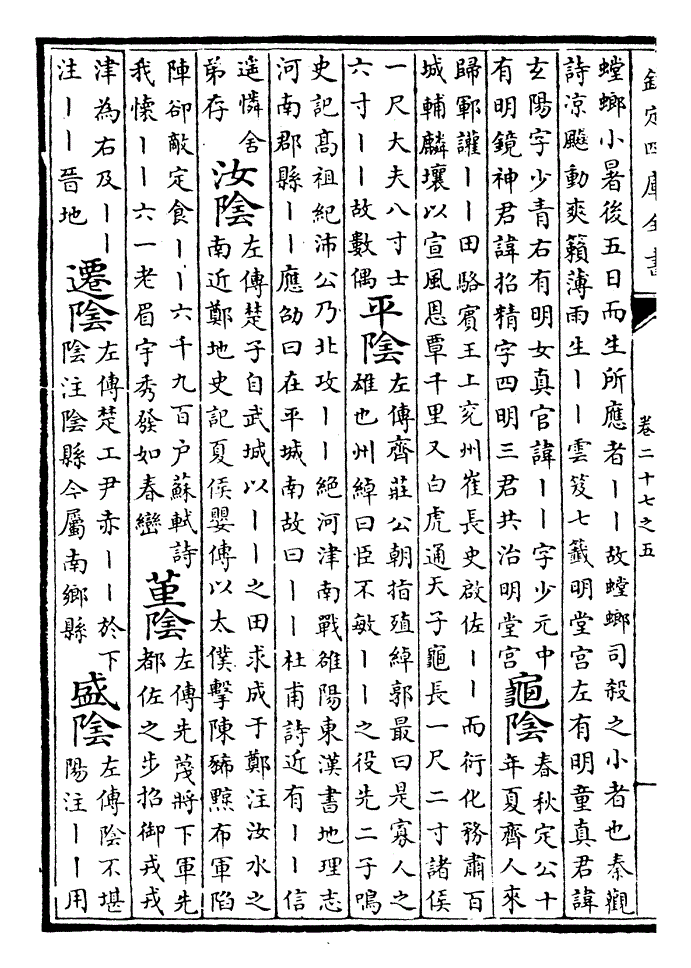 欽定四庫全書
卷二十七之五
螳螂小暑後五日而生所應者丨丨故螳螂司殺之小者也秦觀
詩凉飈動爽籟薄雨生丨丨雲笈七籤明堂宮左有明童真君諱
玄陽字少青右有明女真官諱丨丨字少元中
有明鏡神君諱招精字四明三君共治明堂宮
龜陰
春秋定公十
年夏齊人來
歸鄆讙丨丨田駱賓王上兖州崔長史啟佐丨丨而衍化務肅百
城輔麟壤以宣風恩覃千里又白虎通天子龜長一尺二寸諸侯
一尺大夫八寸士
六寸丨丨故數偶
平陰
左傳齊莊公朝指殖綽郭最曰是寡人之
雄也州綽曰臣不敏丨丨之役先二子鳴
史記髙祖紀沛公乃北攻丨丨絕河津南戰雒陽東漢書地理志
河南郡縣丨丨應劭曰在平城南故曰丨丨杜甫詩近有丨丨信
遥憐舍
弟存
汝陰
左傳楚子自武城以丨丨之田求成于鄭注汝水之
南近鄭地史記夏侯嬰傳以太僕擊陳豨黥布軍陷
陣卻敵定食丨丨六千九百户蘇軾詩
我懐丨丨六一老眉宇秀發如春巒
堇陰
左傳先蔑將下軍先
都佐之步招御戎戎
津為右及丨丨
注丨丨晉地
遷陰
左傳楚工尹赤丨丨於下
陰注陰縣今屬南鄉縣
盛陰
左傳陰不堪
陽注丨丨用